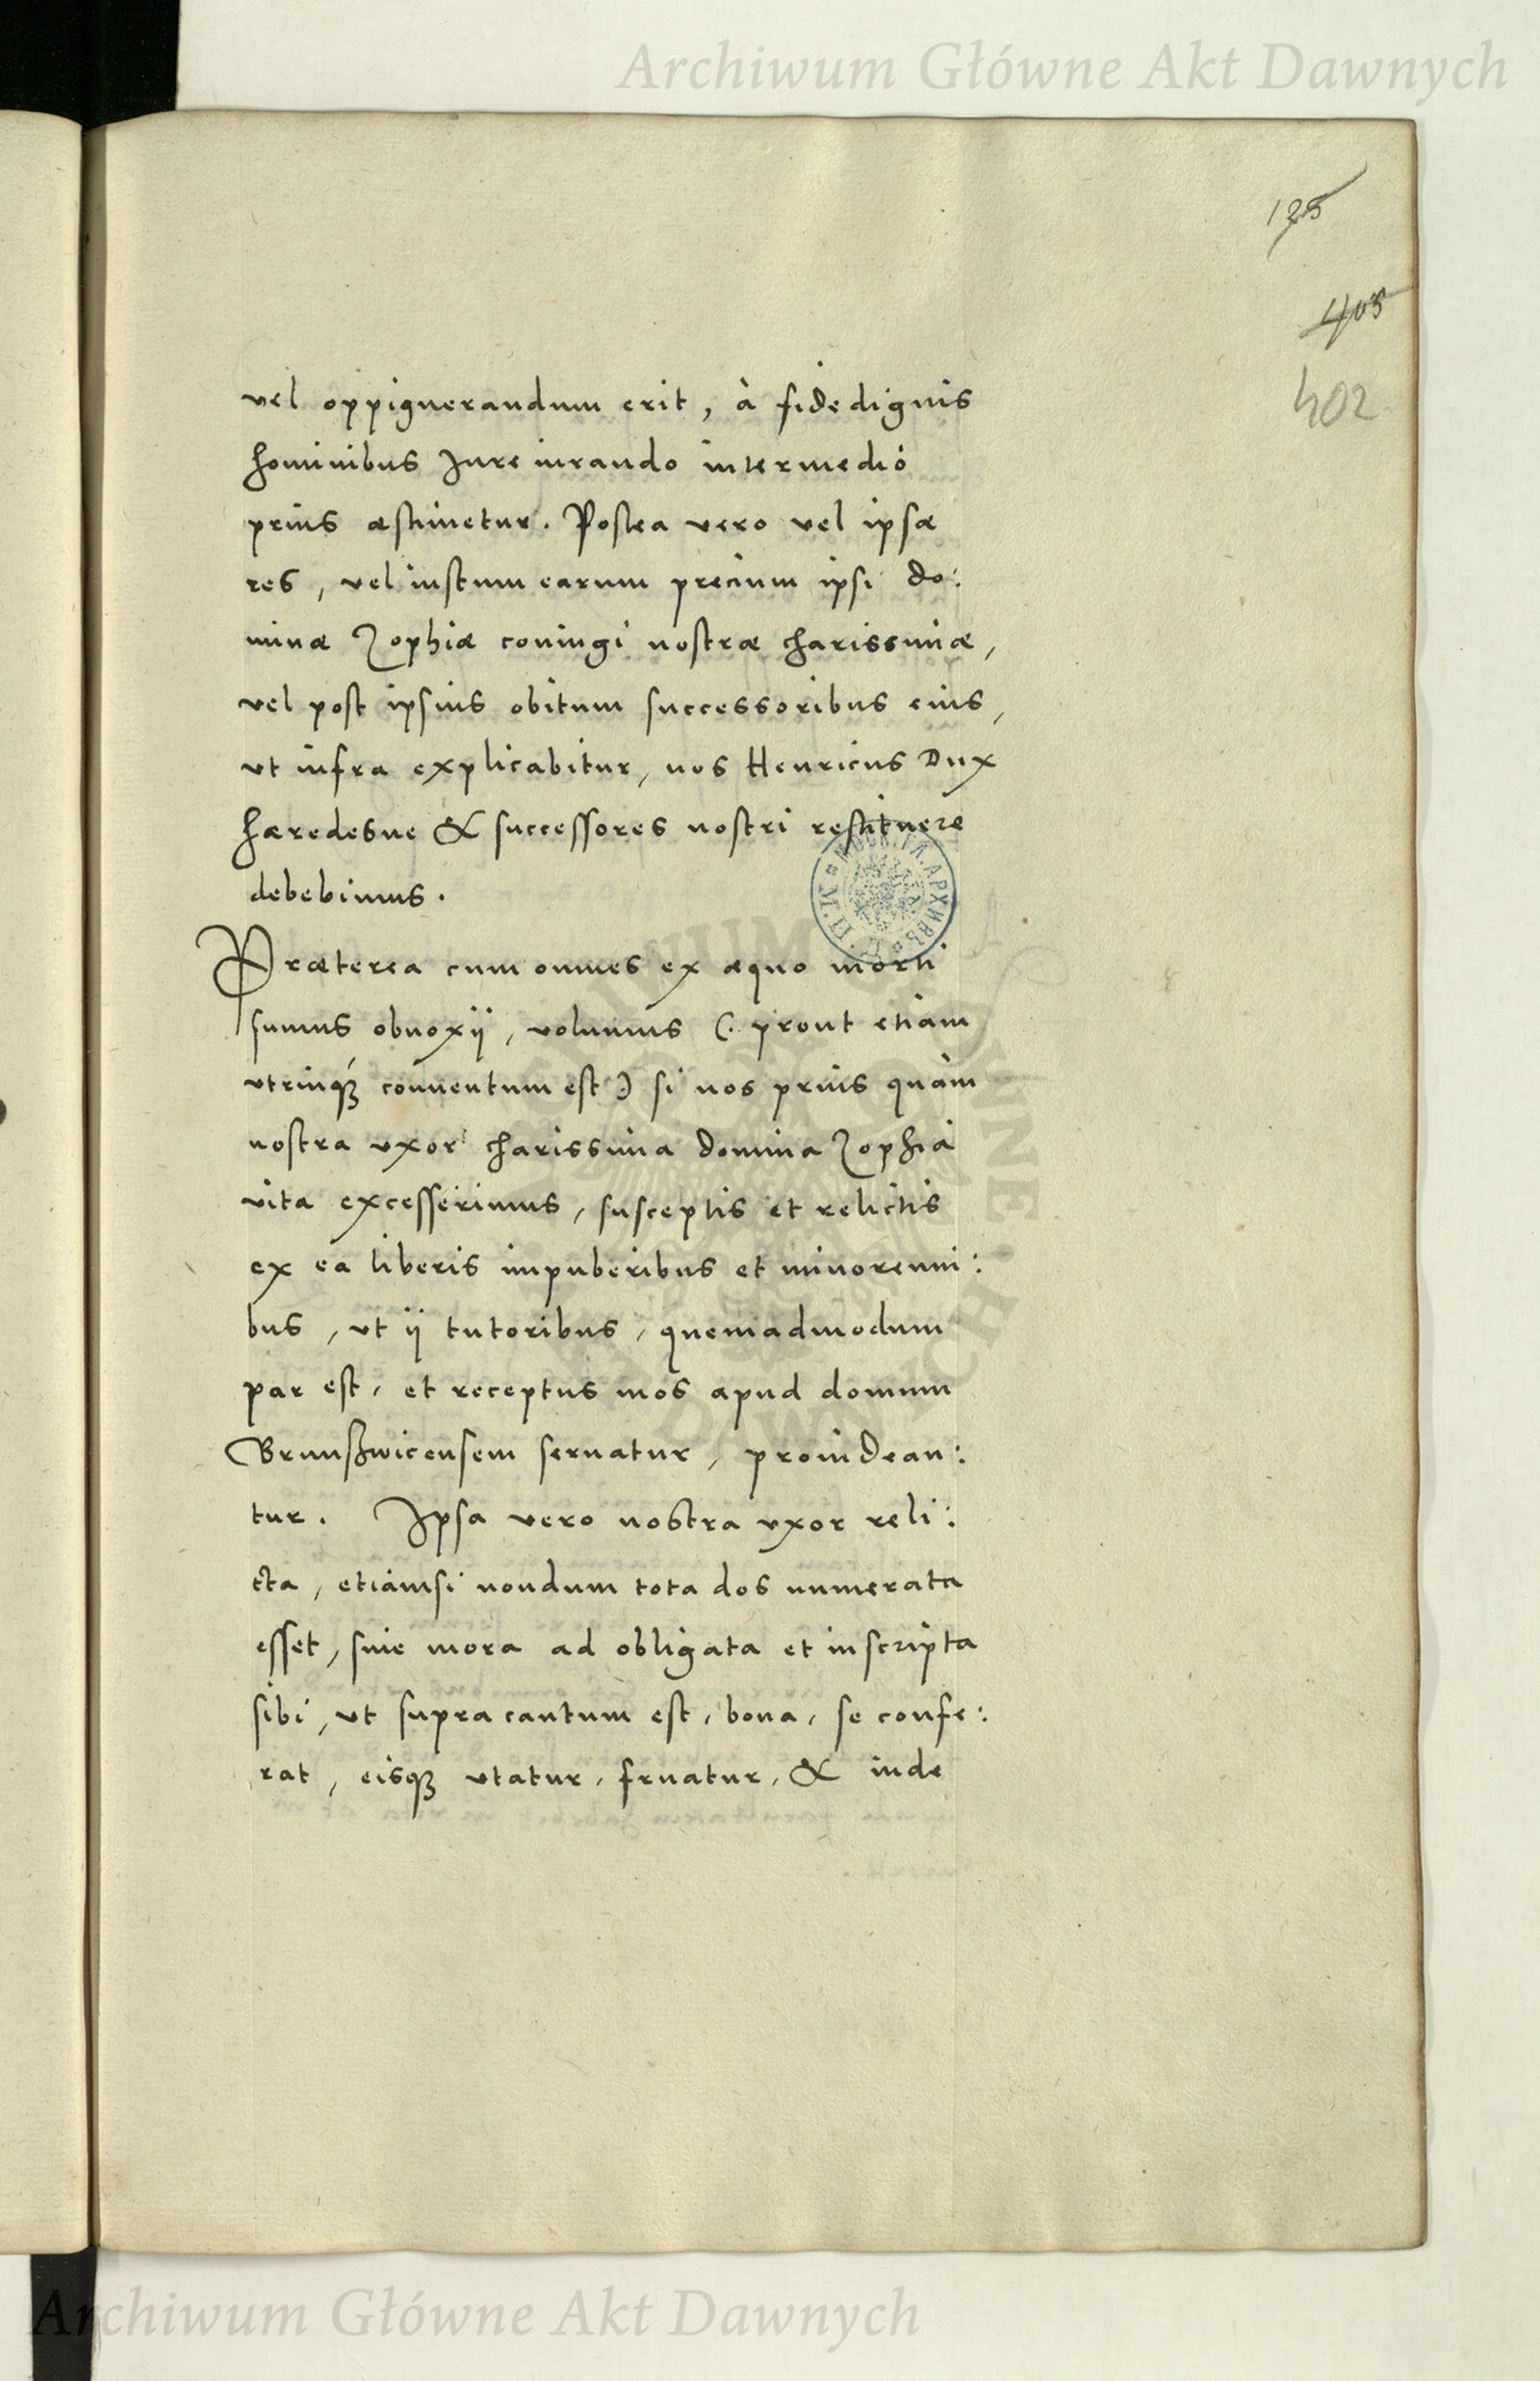 Archiwum Główne Akt Dawnych
125
405
402
vel oppignerandum erit, à fide dignis
hominibus Jure iurando intermedio
prius æstimetur. Postea vero vel ipsæ
res, vel iustum earum precium ipsi do:
minæ Zophiæ coniugi nostræ charissimæ,
vel post ipsius obitum successoribus eius,
ut infra explicabitur, nos Henricus Dux
hæredesue & successores nostri restituere
debebimus.
Præterea cum omnes ex æquo morti
sumus obnoxij, volumus (: prout etiam
vtrinq́ue conuentum est) si nos prius quàm
nostra vxor charissima domina Zophia
vita excesserimus, susceptis et relictis
ex ea liberis impuberibus et minorenni:
bus, vt ij tutoribus, quemadmodum
par est, et receptus mos apud domum
Brunßwicensem seruatur, prouidean:
tur. Ipsa vero nostra vxor reli:
cta, etiamsi nondum tota dos numerata
esset, sine mora ad obligata et inscripta
sibi, vt supra cautum est, bona, se confe:
rat, eisqꝫ vtatur, fruatur, & inde
Archiwum Główne Akt Dawnych